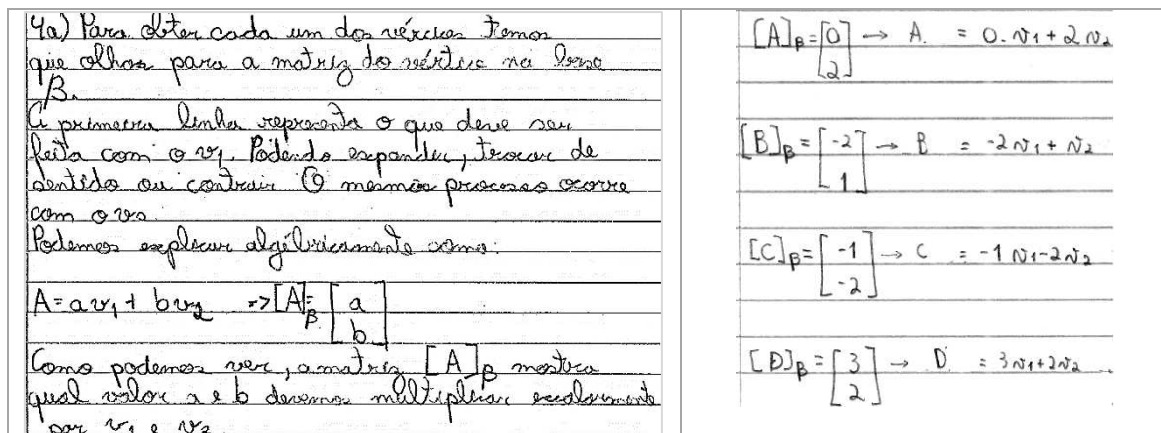 4a) Para obter cada um dos vércies temos
que olhar para a matriz do vértice na base
β.
A primeira linha representa o que deve ser
feita com o v₁. Podendo expandir, trocar de
sentido ou contrair O mesmo processo ocorre
com o v₂.
Podemos explicar algébricamente como:
A = av₁ + bv₂ => [A]β = [a b]
Como podemos ver, a matriz [A]β mostra
qual valor a e b devemos multiplicar escalarmente
por v₁ e v₂.
[A]β = [0 2] → A. = 0.v₁ + 2v₂
[B]β = [-2 1] → B = -2v₁ + v₂
[C]β = [-1 -2] → C = -1v₁ - 2v₂
[D]β = [3 2] → D. = 3v₁ + 2v₂